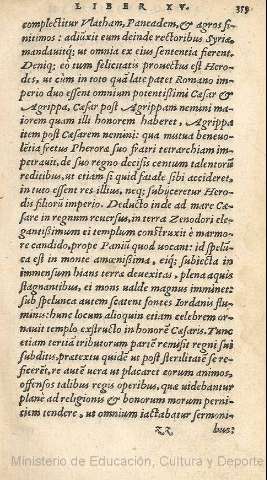 LIBER XV.
359
complectitur Vlatham, Paneadem, & agros fi-
nitimos: adiūxit eum deinde rectoribus Syriæ,
mandauitq; ut omnia ex eius sententia fierent.
Deniq; eò tum felicitatis prouectus est Hero-
des, ut cùm in toto quā late patet Romano im-
perio duo essent omnium potentissimi Cæsar &
Agrippa, Cæsar post Agrippam nemini ma-
iorem quam illi honorem haberet, Agrippa
item post Cæsarem nemini: qua mutua beneuo-
lētia fretus Pheroræ suo fratri tetrarchiam im-
petrauit, de suo regno decisis centum talentorū
reditibus, ut etiam si quid fatale sibi accideret,
in tuto essent res illius, neq; subijceretur Hero-
dis filiorū imperio. Deducto inde ad mare Cæ-
sare in regnum reuersus, in terra Zenodori ele-
gantissimum ei templum construxit è marmo-
re candido, prope Paniū quod uocant: id spelū-
ca est in monte amœnissima, eiq; subiecta in
immensum hians terræ deuexitas, plena aquis
stagnantibus, ei mons ualde magnus imminet:
sub spelunca autem scatent fontes Iordanis flu-
minis: hunc locum alioquin etiam celebrem or-
nauit templo exstructo in honorē Cæsaris. Tunc
etiam tertiā tributorum partē remisit regni sui
subditis, prætextu quidē ut post sterilitatē se re-
ficerēt, re autē uera ut placaret eorum animos,
offensos talibus regis operibus, quæ uidebantur
planè ad religionis & bonorum morum perni-
ciem tendere, ut omnium iactabatur sermoni-
zz
bus:
Ministerio de Educación, Cultura y Deporte